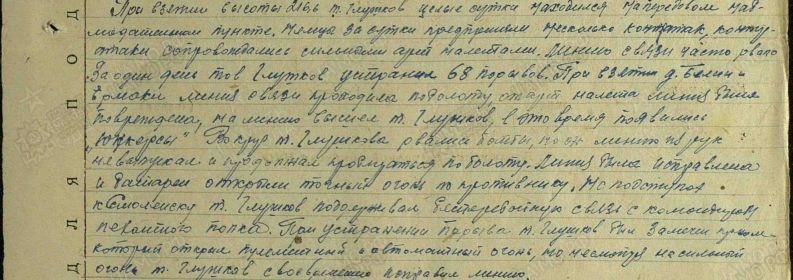 При взятии высоты 216,6 т. Глушков целые сутки находился на передовом на-
блюдательном пункте. Немцы за сутки предприняли несколько контратак, контр-
атаки сопровождались сильными арт налетами. Линию связи часто рвало
За один день тов Глушков устранил 68 порывов. При взятии д. Белин и
Ермаки линия связи проходила по болоту, от арт налета линия была
повреждена, на линию вышел т. Глушков, в это время появились
"Юнкерсы" Вокруг т. Глушкова рвались бомбы, но он линию из рук
не выпускал и продолжал продвигаться по болоту. Линия была исправлена
и батареи открыли точный огонь по противнику. На подступах
к Смоленску т. Глушков поддерживал бесперебойную связь с командиром
пехотного полка. При устранении порыва т. Глушков был замечен
который открыл пулеметный и автоматный огонь, но несмотря на сильный
огонь т. Глушков своевременно исправил линию.
Д Л Я П О Д